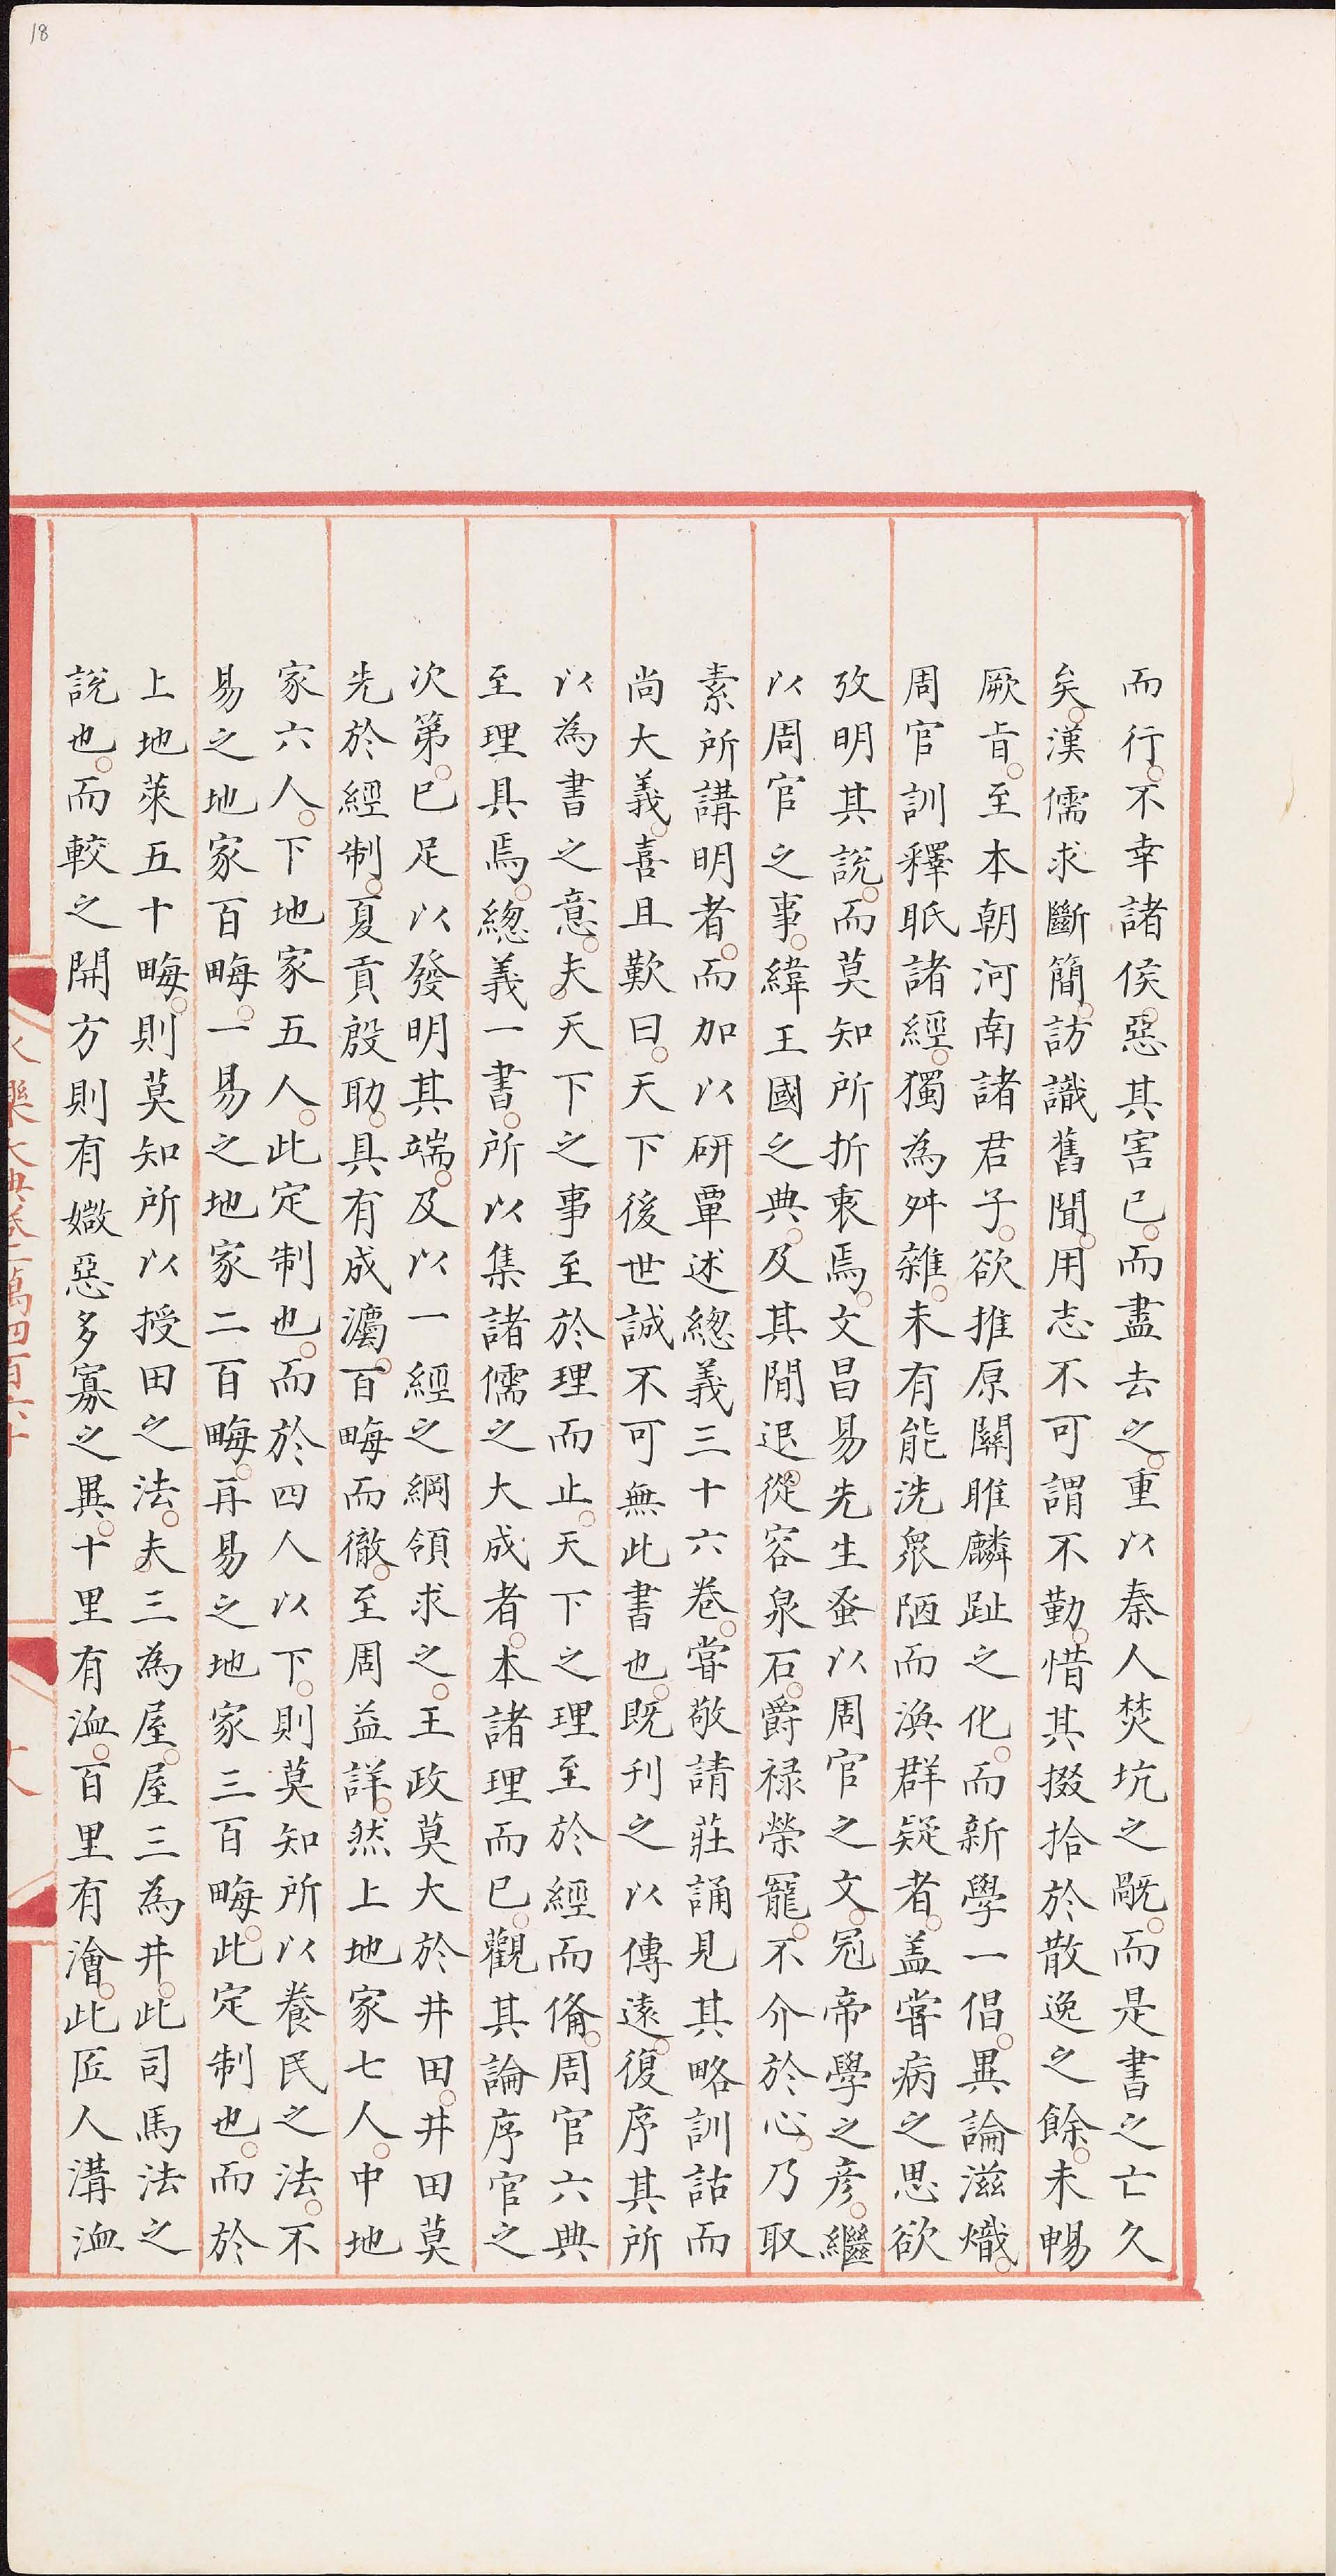 18
而行不幸諸侯惡其害已而盡去之重以秦人焚坑之厄而是書之亡久
矣漢儒求斷簡訪識舊聞用志不可謂不勤惜其掇拾於散逸之餘未暢
厥旨至本朝河南諸君子欲推原關雎麟趾之化而新學一倡異論滋熾
周官訓釋眂諸經獨為舛雜未有能洗衆陋而渙群疑者盖嘗病之思欲
攷明其說而莫知所折衷焉文昌易先生蚤以周官之文冠帝學之彦繼
以周官之事緯王國之典及其閒退從容泉石爵禄榮寵不介於心乃取
素所講明者而加以研覃述緫義三十六卷嘗敬請莊誦見其略訓詁而
尚大義喜且歎曰天下後世誠不可無此書也既刊之以傳遠復序其所
以為書之意夫天下之事至於理而止天下之理至於經而俻周官六典
至理具焉緫義一書所以集諸儒之大成者本諸理而已觀其論序官之
次第已足以發明其端及以一經之綱領求之王政莫大於井田井田莫
先於經制夏貢殷助具有成灋百畮而徹至周益詳然上地家七人中地
家六人下地家五人此定制也而於四人以下則莫知所以養民之法不
易之地家百畮一易之地家二百畮再易之地家三百畮此定制也而於
上地萊五十畮則莫知所以授田之法夫三為屋屋三為井此司馬法之
說也而較之開方則有媺惡多寡之異十里有洫百里有澮此匠人溝洫